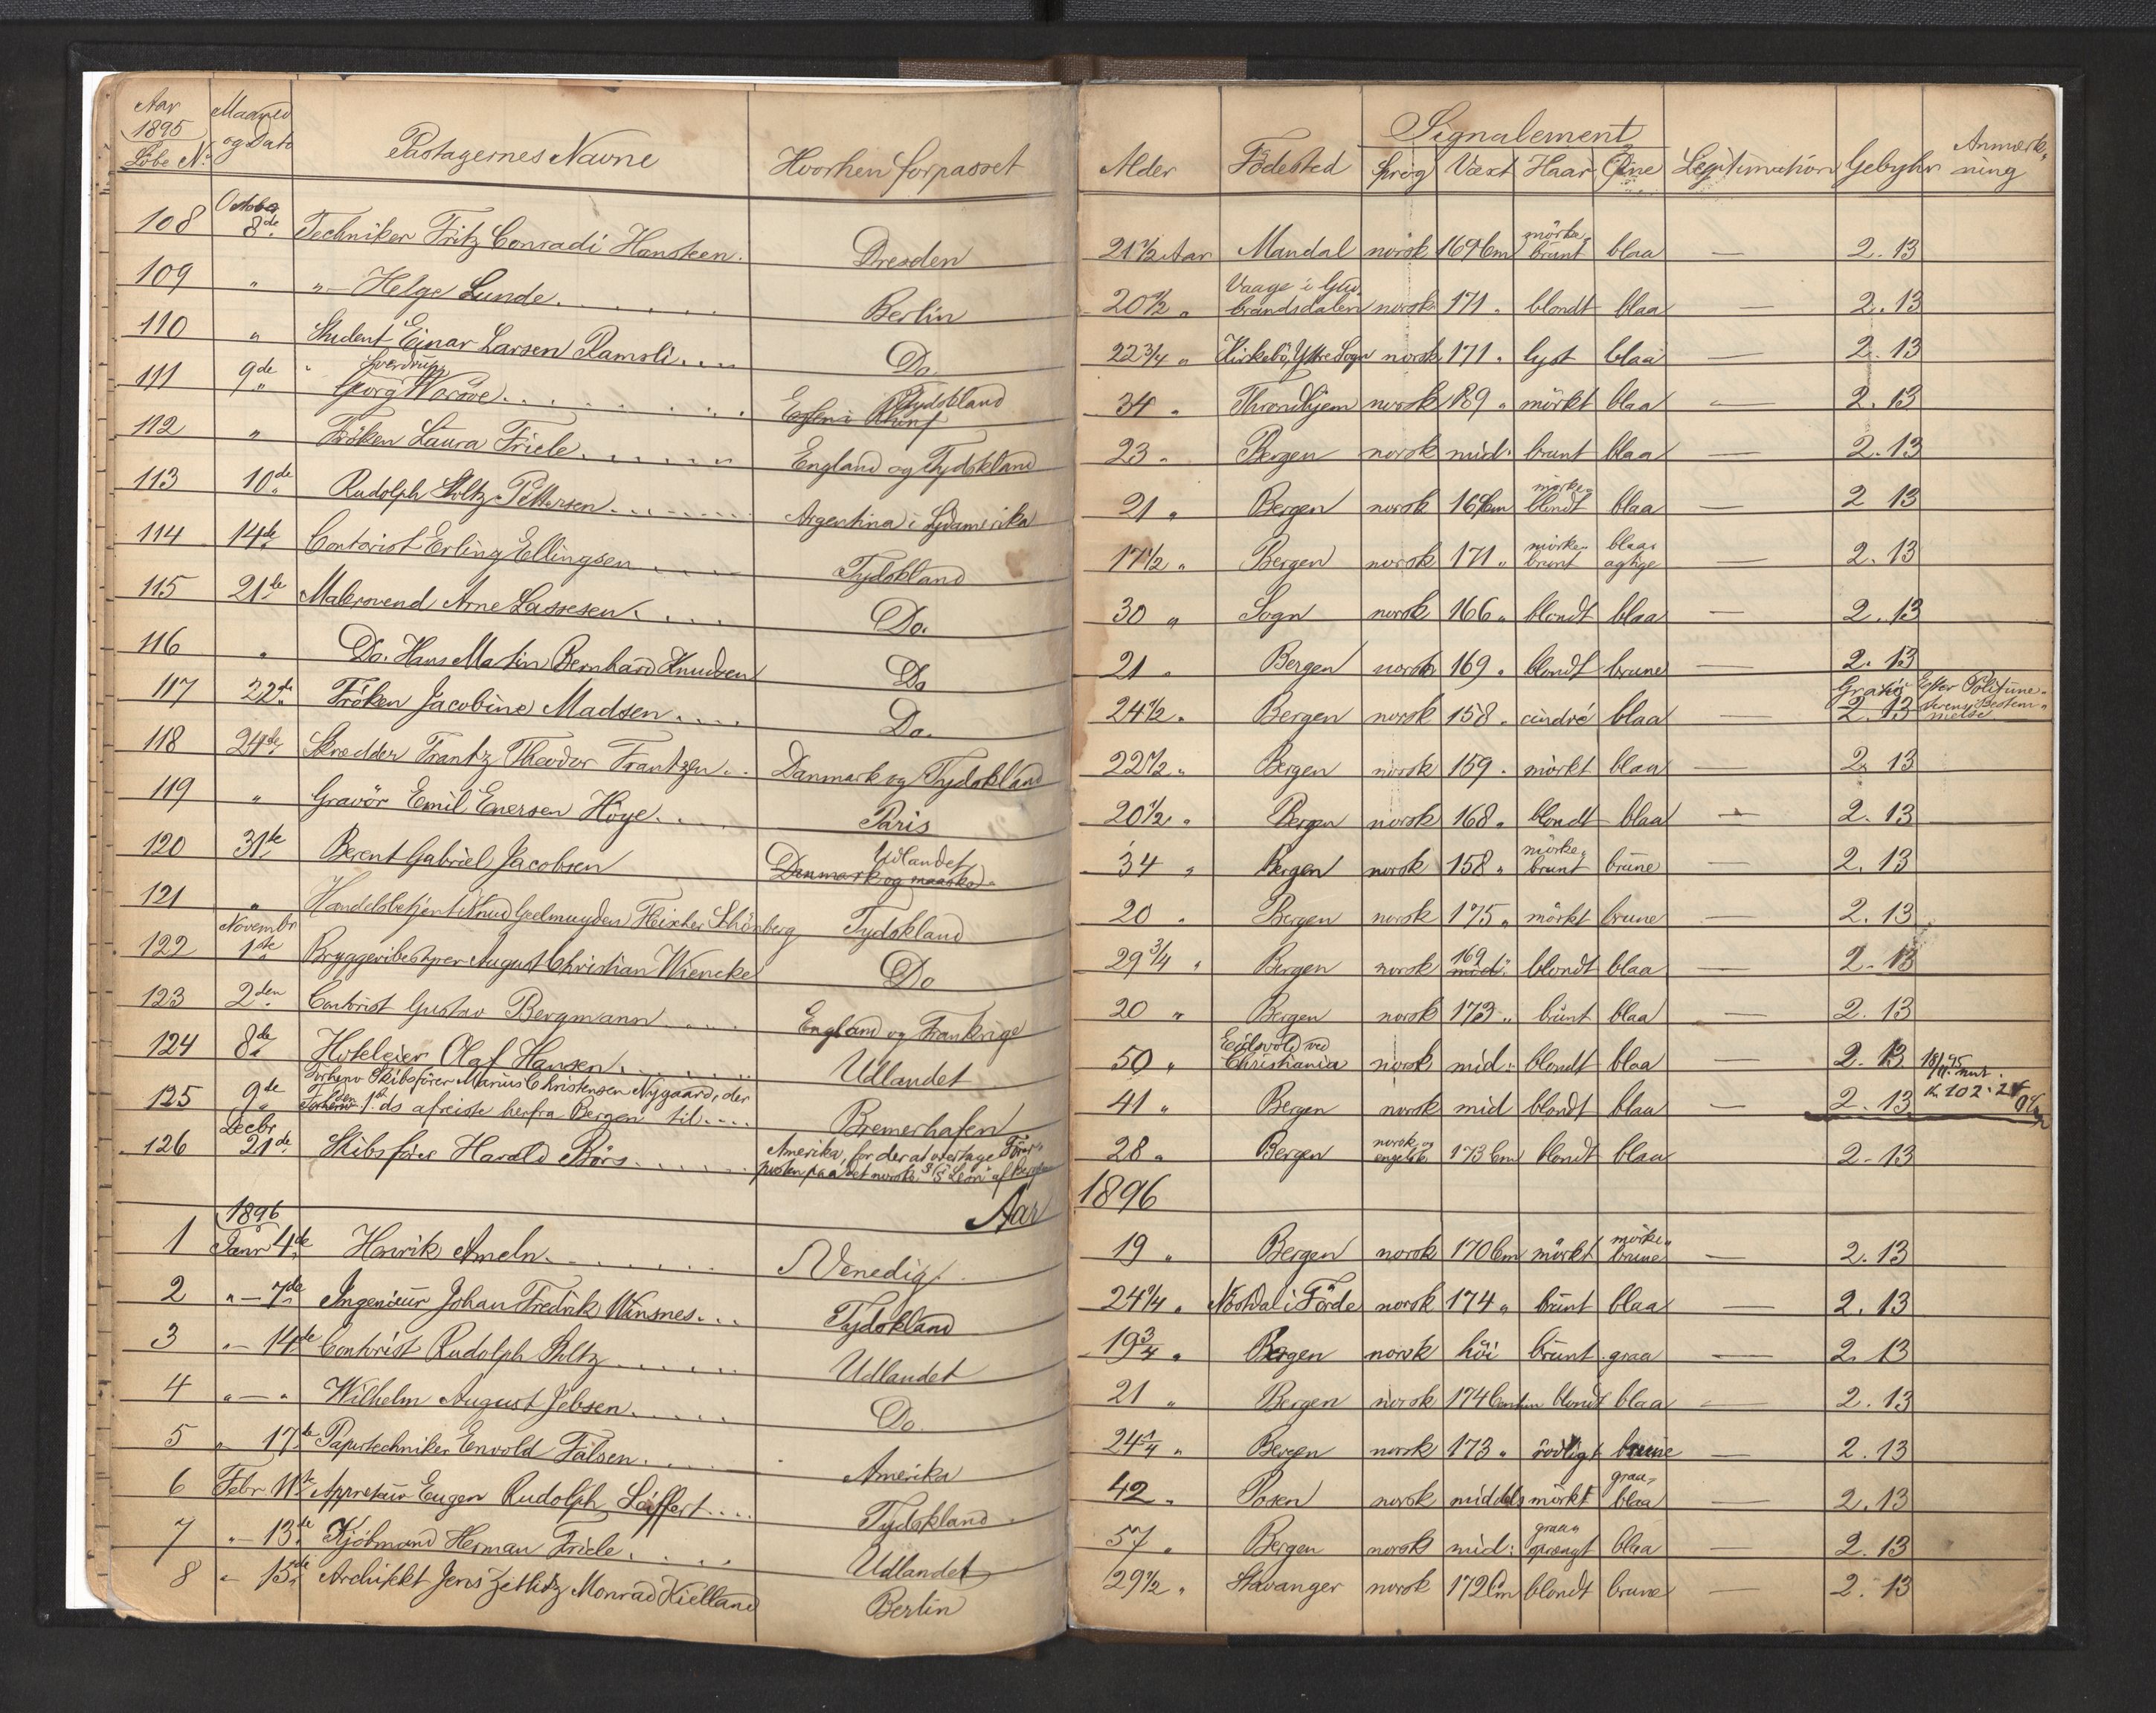 Aar 1895 Löbe No. | Maaned og Dato | Pastagernes Navne | Hvorhen forpasset | Alder | Födested | Signalement: Sprog | Væxt | Haar | Öine | Legitimation | Gebyhr | Anmærkning
108 | October 8de | Techniker Fritz Conradi Hansteen. | Dresden | 21 1/2 Aar | Mandal | norsk | 169 Cm | mörkebrunt | blaa | — | 2.13
109 | " | "— Helge Lunde.... | Berlin | 20 1/2 " | Vaage i Gudbrandsdalen | norsk | 171 " | blondt | blaa | — | 2.13
110 | " | Student Einar Larsen Ramsli.... | Do. | 22 3/4 " | Kirkebö, Yttre Sogn | norsk | 171 " | lyst | blaa | — | 2.13
111 | 9de | " Georg Sverdrup Worsöe.... | Tydskland | 34 " | Throndhjem | norsk | 189 " | mörkt | blaa | — | 2.13
112 | " | Fröken Laura Friele.... | England og Tydskland | 23 " | Bergen | norsk | mid: | brunt | blaa | — | 2.13
113 | 10de | Rudolph Stoltz Pettersen.... | Argentina i Sydamerika | 21 " | Bergen | norsk | Cm | mörkeblondt | blaa | — | 2.13
114 | 14de | Contorist Erling Ellingsen.... | Tydskland | 17 1/2 " | Bergen | norsk | 171 " | mörkebrunt | blaaagtige | — | 2.13
115 | 21de | Malersvend Arne Lassesen.... | Do. | 30 " | Sogn | norsk | 166 " | blondt | blaa | — | 2.13
116 | " | Do. Hans Martin Bernhard Knudsen | Do | 21 " | Bergen | norsk | 169 " | blondt | brune | — | 2.13
117 | 22de | Fröken Jacobine Madsen.... | Do. | 24 1/2 " | Bergen | norsk | 158 " | cindré | blaa | — | Gratis 2.13 | Efter Politimesterens Bestemmelse
118 | 24de | Skrædder Frantz Theodor Frantzen.. | Danmark og Tydskland | 22 1/2 " | Bergen | norsk | 159 " | mörkt | blaa | — | 2.13
119 | " | Gravör Emil Enersen Höye.... | Paris | 20 1/2 " | Bergen | norsk | 168 " | blondt | blaa | — | 2.13
120 | 31te | Berent Gabriel Jacobsen | Udlandet Danmark og maaske | 34 " | Bergen | norsk | 158 " | mörkebrunt | brune | — | 2.13
121 | " | Handelsbetjent Knud Geelmuyden Fleischer Schönberg | Tydskland | 20 " | Bergen | norsk | 175 " | mörkt | brune | — | 2.13
122 | Novembr 1ste | Bryggeribestyrer August Christian Wiencke | Do | 29 3/4 " | Bergen | norsk | 169 mid: | blondt | blaa | — | 2.13
123 | 2den | Contorist Gustav Bergmann.... | England og Frankrige | 20 " | Bergen | norsk | 173 " | brunt | blaa | — | 2.13
124 | 8de | Hoteleier Olaf Hansen.... | Udlandet | 50 " | Eidsvold ved Christiania | norsk | mid: | blondt | blaa | — | 2.13 | 18/11 95
125 | 9de | Förhenv. Skibsförer Marius Christensen Nygaard, der den 1ste ds afreiste herfra Bergen til.... | Bremerhafen | 41 " | Bergen | norsk | mid | blondt | blaa | — | 2.13 | K. 102.24
126 | Decbr 21de | Skibsförer Harald Börs.... | Amerika, for der at overtage Förerposten paa det norske S/S "Leon" af Bergen | 28 " | Bergen | norsk og engelsk | 173 Cm | blondt | blaa | | 2.13
Aar 1896
1 | 1896 Januar 4de | Henrik Ameln.... | Venedig | 19 " | Bergen | norsk | 170 Cm | mörkt | mörkebrune | — | 2.13
2 | "— 7de | Ingeniör Johan Fredrik Winsnes.... | Tydskland | 24 1/4 " | i Förde | norsk | 174 " | brunt | blaa | — | 2.13
3 | "— 14de | Contorist Rudolph Stoltz.... | Udlandet | 19 3/4 " | Bergen | norsk | höi | brunt | graa | — | 2.13
4 | "—" | Wilhelm August Jebsen.... | Do. | 21 " | Bergen | norsk | 174 Centm | blondt | blaa | — | 2.13
5 | " 17de | Papirtechniker Envold Falsen.... | Amerika | 24 1/4 " | Bergen | norsk | 173 " | rödligt | brune | — | 2.13
6 | Febr 11te | Appreteur Eugen Rudolph Seiffert.... | Tydskland | 42 " | Posen | norsk | middels | mörkt | graablaa | — | 2.13
7 | "— 13de | Kjöbmand Herman Friele.... | Udlandet | 57 " | Bergen | norsk | mid: | graasprængt | blaa | — | 2.13
8 | "— 15de | Architekt Jens Zetlitz Monrad Kielland | Berlin | 29 1/2 " | Stavanger | norsk | 172 Cm | blondt | brune | — | 2.13